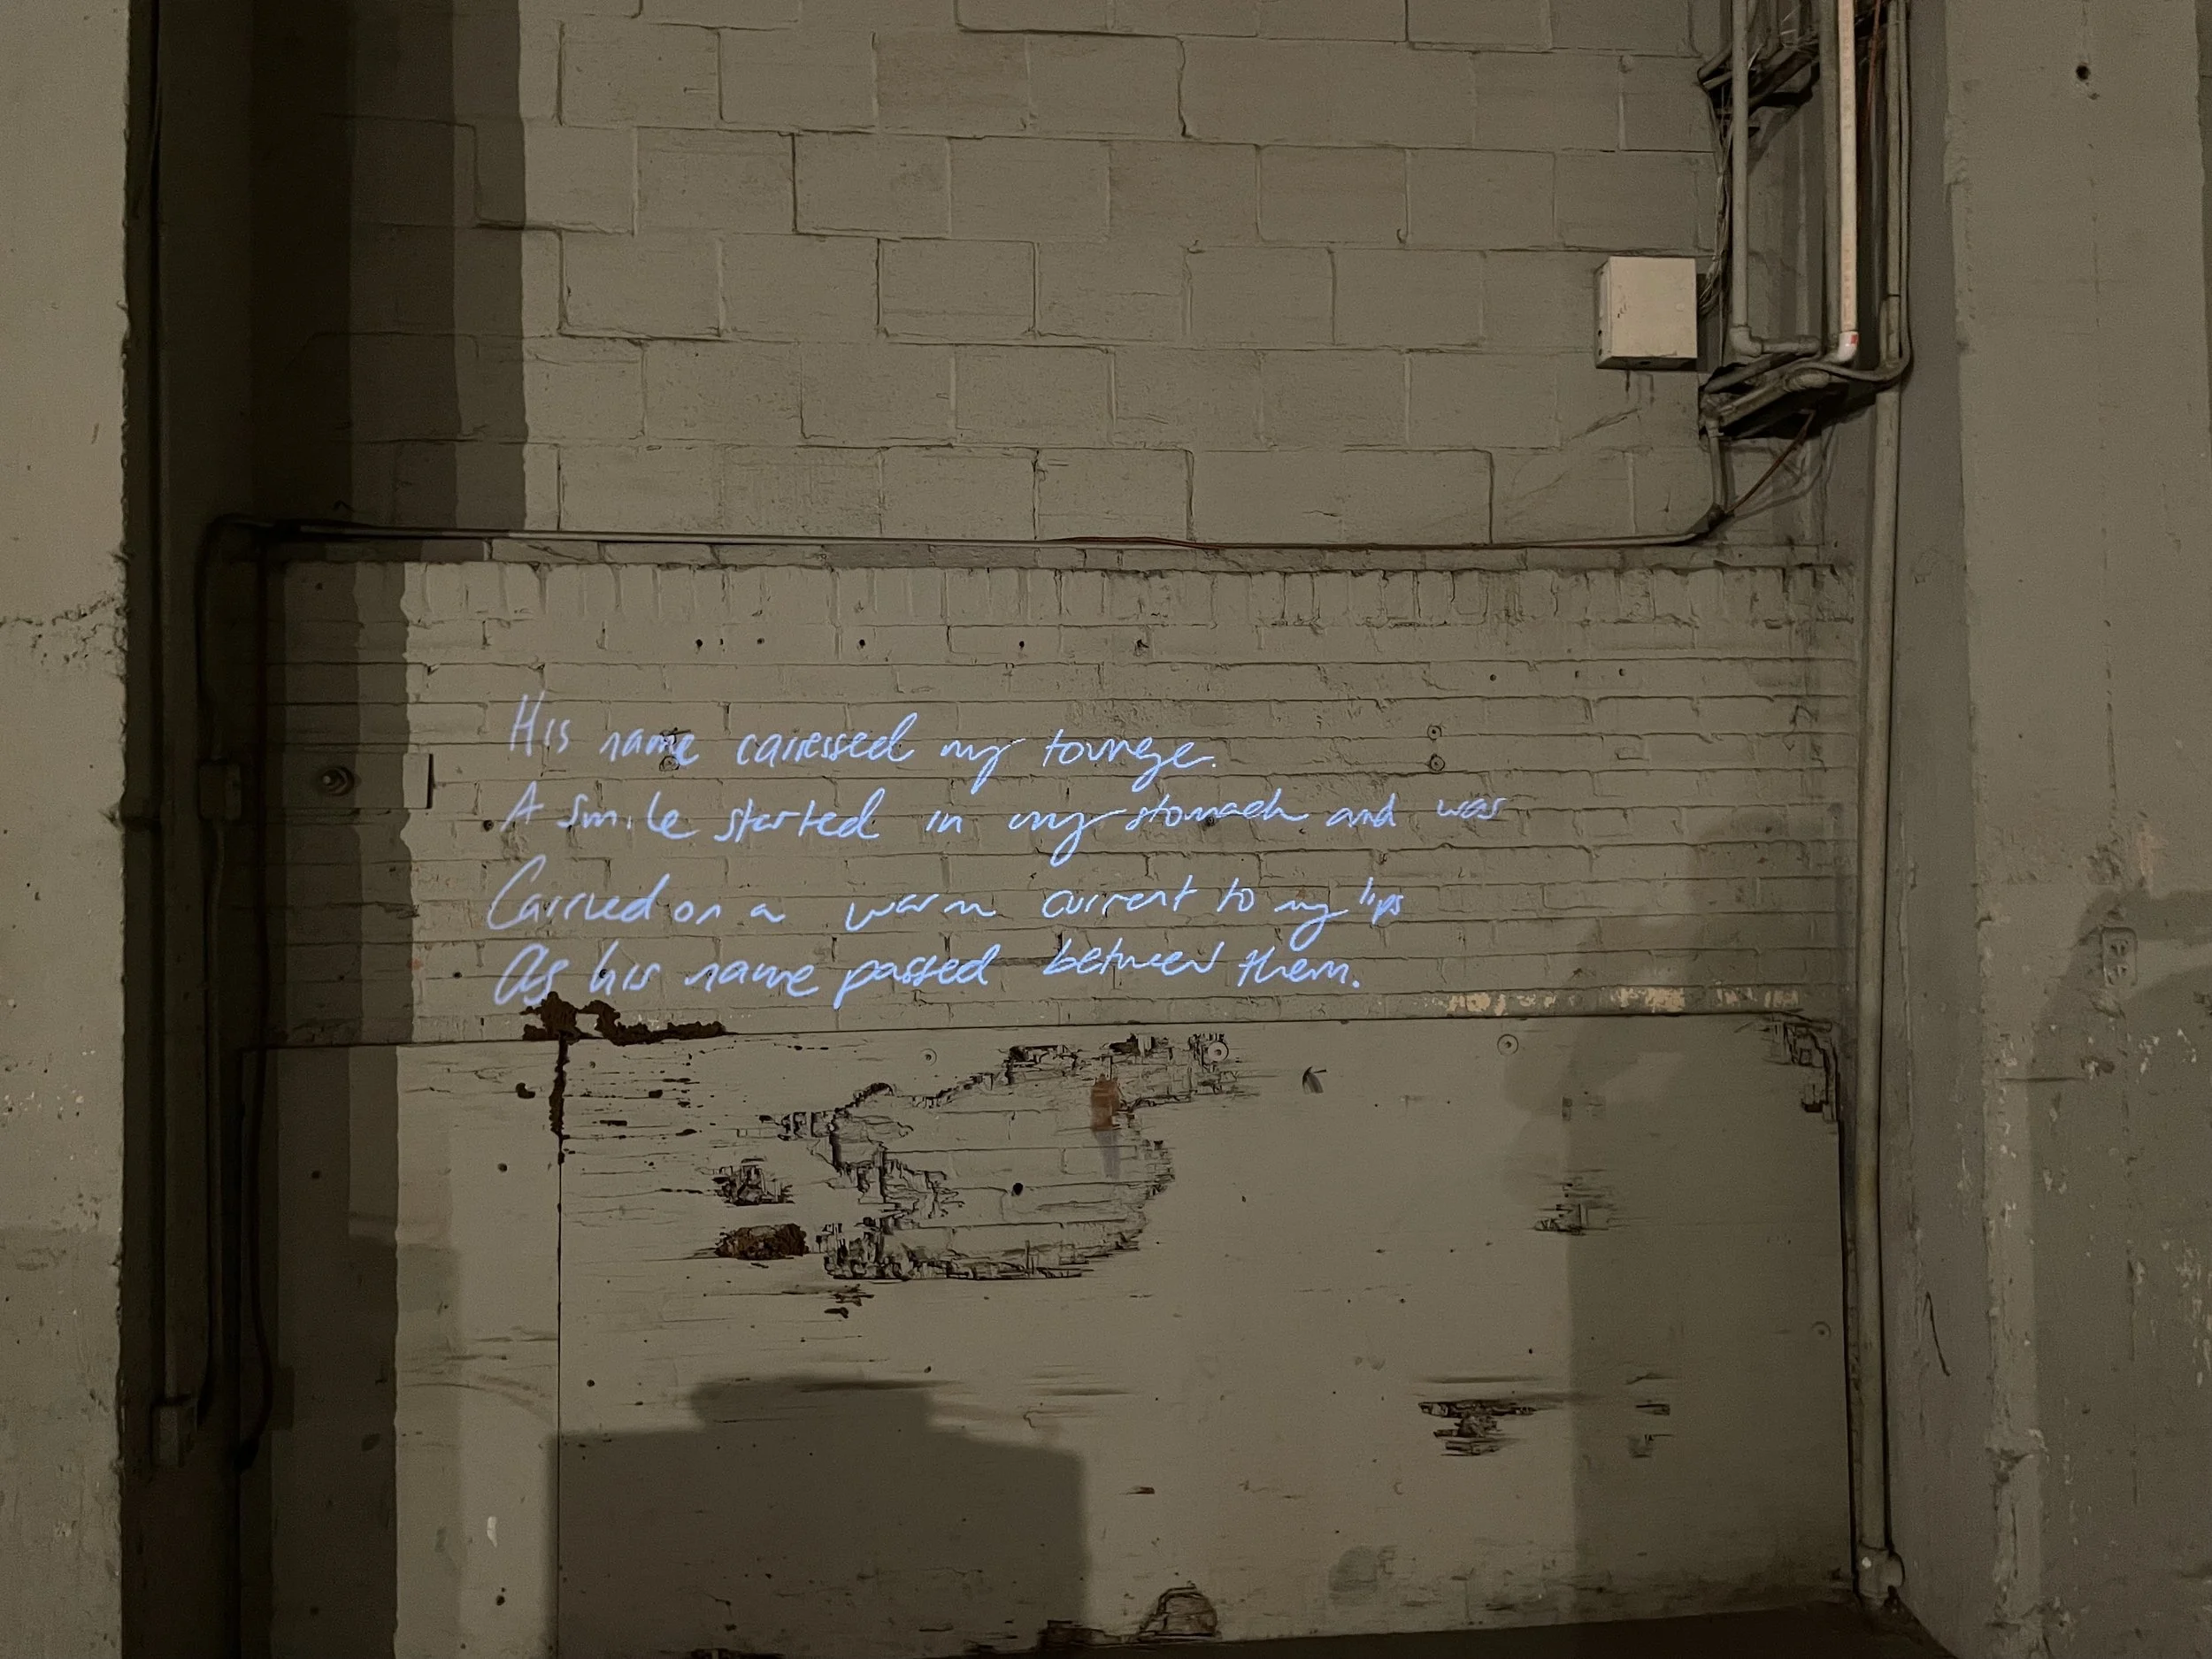 His name caressed my tounge.
A smile started in my stomach and was
Carried on a warm current to my lips
As his name passed between them.